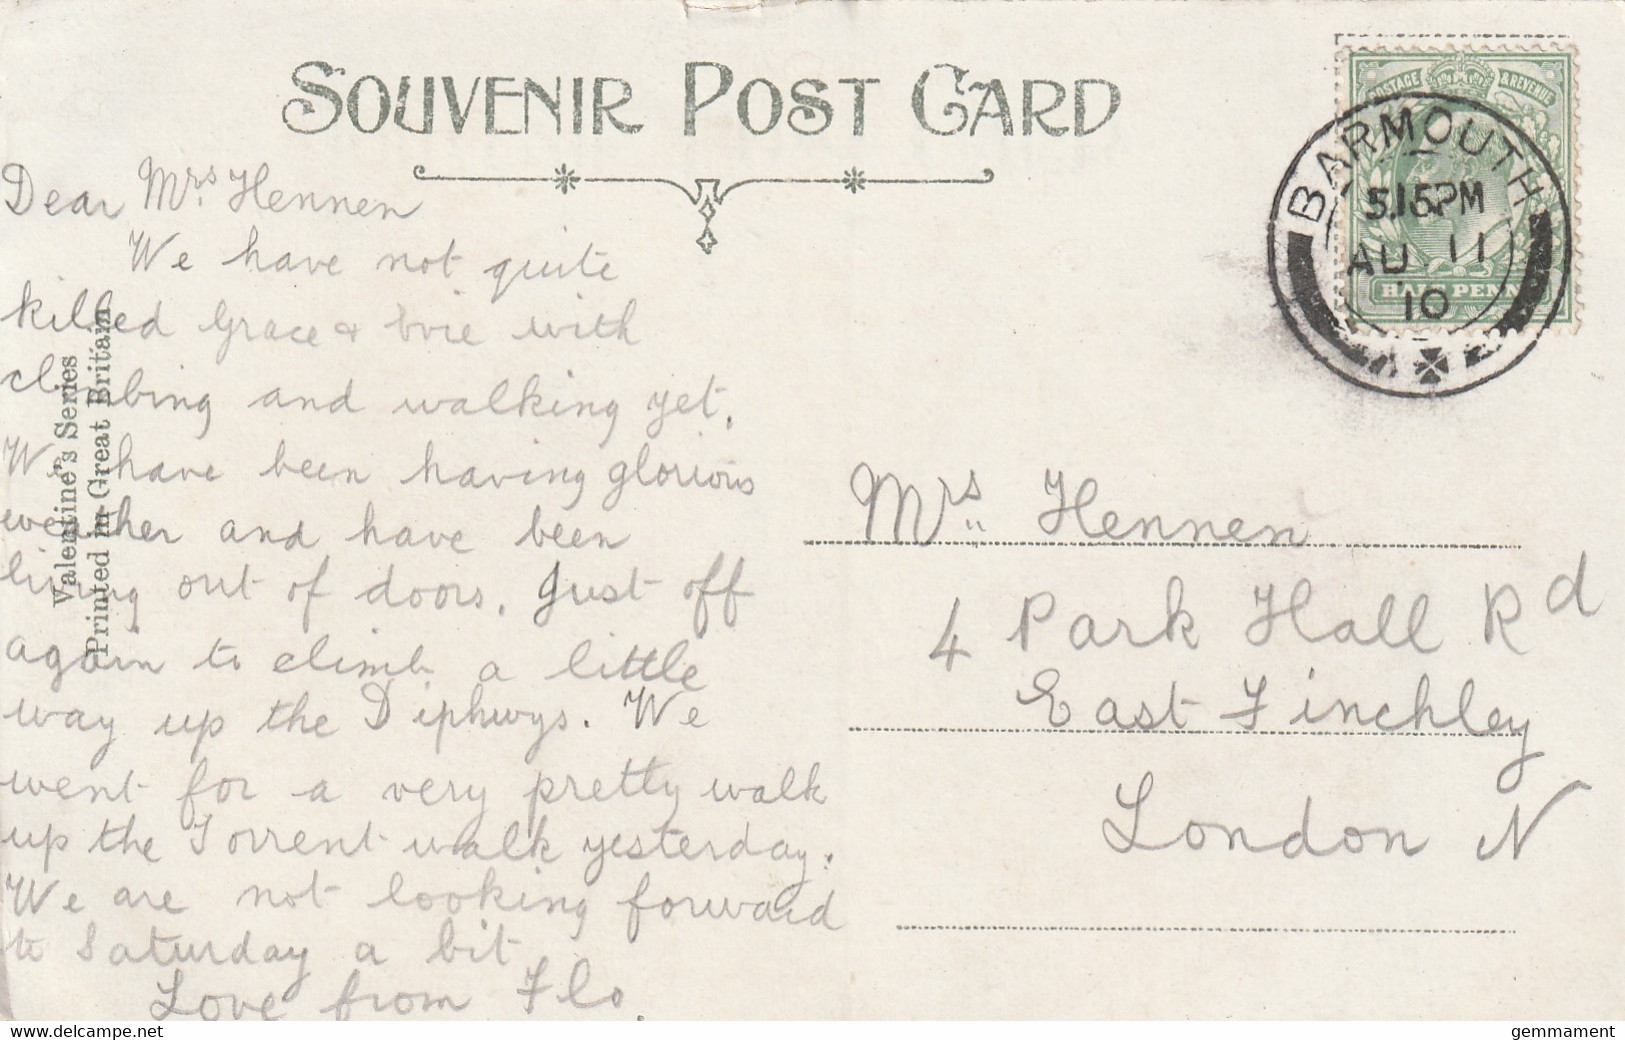 SOUVENIR POST CARD
Dear Mrs Hennen
We have not quite
killed Grace & Ivie with
climbing and walking yet.
We have been having glorious
weather and have been
living out of doors. Just off
again to climb a little
way up the Diphwys. We
went for a very pretty walk
up the Torrent walk yesterday.
We are not looking forward
to Saturday a bit
Love from Flo.
Valentine's Series
Printed in Great Britain
POSTAGE & REVENUE
HALF PENNY
BARMOUTH
5.15PM
AU 11
10
Mrs. Hennen
4 Park Hall Rd
East Finchley
London N
www.delcampe.net
gemmament